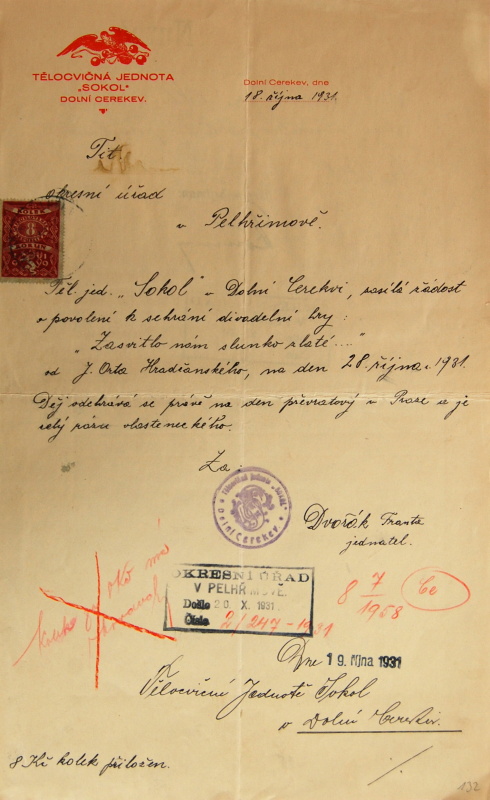 TĚLOCVIČNÁ JEDNOTA
„SOKOL"
DOLNÍ CEREKEV.
Dolní Cerekev, dne
18. října 1931.
Tit.
okresní úřad
v Pelhřimově.
KOLEK
8
KORUN
Těl. jed. „Sokol" v Dolní Cerekvi, zasílá žádost
o povolení k sehrání divadelní hry:
„Zasvitlo nám slunko zlaté...."
od J. Orta Hradčanského, na den 28. října r. 1931.
Děj odehrává se právě na den převratový v Praze a je
celý rázu vlasteneckého.
Za:
Tělocvičná jednota „Sokol"
Dolní Cerekev.
Dvořák Franta
jednatel.
OKRESNÍ ÚŘAD
V PELHŘIMOVĚ.
Došlo 20. X. 1931.
Číslo 2/247-1931
8 7/1958
Dne 19. října 1931
Tělocvičné Jednotě Sokol
v Dolní Cerekvi.
8 Kč kolek přiložen.
132